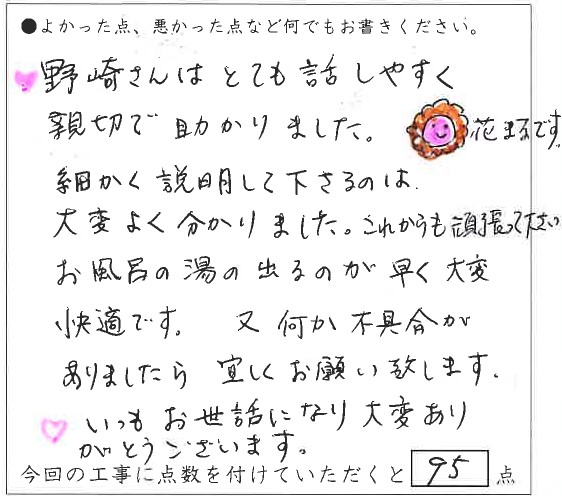 ●よかった点、悪かった点など何でもお書きください。
野崎さんは とても 話しやすく
親切で 助かりました。 花まるです。
細かく 説明して下さるのは
大変 よく 分かりました。これからも頑張って下さい
お風呂の湯の出るのが 早く 大変
快適です。 又 何か 不具合が
ありましたら 宜しくお願い致します。
いつも お世話になり 大変あり
がとうございます。
今回の工事に点数を付けていただくと 95 点